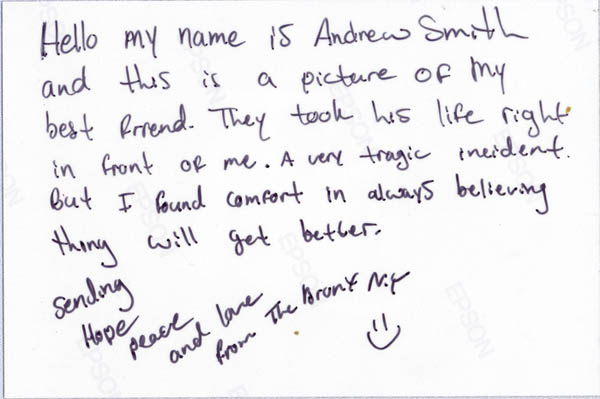 Hello my name is Andrew Smith
and this is a picture of my
best friend. They took his life right
in front of me. A very tragic incident.
But I found comfort in always believing
thing will get better.
sending
Hope
peace
and love
from The Bronx NY
EPSON
EPSON
EPSON
EPSON
EPSON
EPSON
EPSON